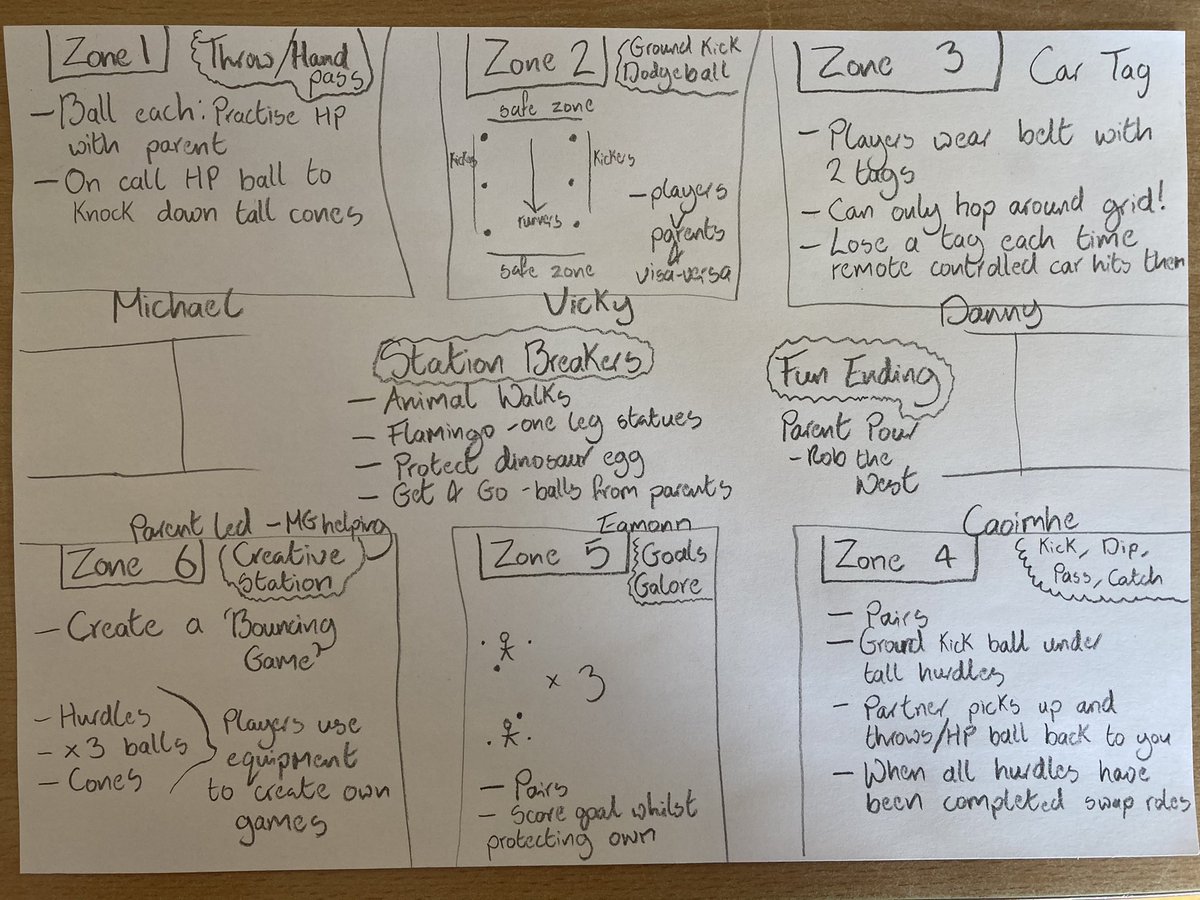 Zone 1
Throw/Hand
pass
- Ball each: Practise HP
with parent
- On call HP ball to
Knock down tall cones
Michael
Zone 2
Ground Kick
Dodgeball
safe zone
Kickers
Kickers
runners
safe zone
- players
parents
&
visa-versa
Vicky
Zone 3
Car Tag
- Players wear belt with
2 tags
- Can only hop around grid!
- Lose a tag each time
remote controlled car hits them
Danny
Station Breakers
- Animal Walks
- Flamingo - one leg statues
- Protect dinosaur egg
- Get & Go - balls from parents
Fun Ending
Parent Pour
- Rob the
Nest
Parent Led - MG helping
Zone 6
Creative
Station
- Create a 'Bouncing
Game'
- Hurdles
- x3 balls
- Cones
Players use
equipment
to create own
games
Eamonn
Zone 5
Goals
Galore
x 3
- Pairs
- Score goal whilst
protecting own
Caoimhe
Zone 4
Kick, Dip,
Pass, Catch
- Pairs
- Ground Kick ball under
tall hurdles
- Partner picks up and
throws/HP ball back to you
- When all hurdles have
been completed swap roles